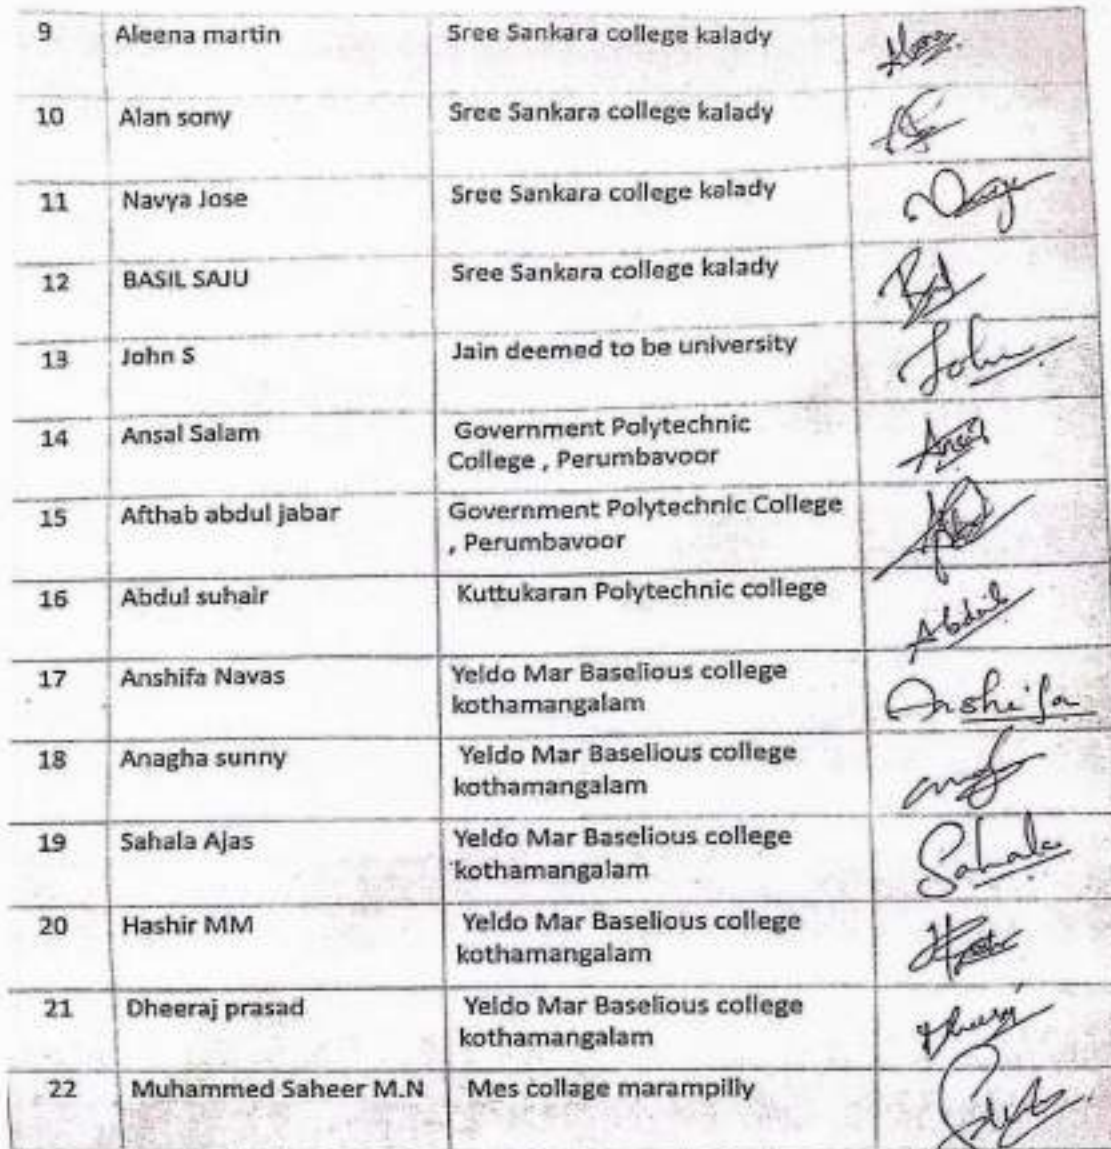 9 Aleena martin Sree Sankara college kalady
10 Alan sony Sree Sankara college kalady
11 Navya Jose Sree Sankara college kalady
12 BASIL SAJU Sree Sankara college kalady
13 John S Jain deemed to be university John
14 Ansal Salam Government Polytechnic
College , Perumbavoor
15 Afthab abdul jabar Government Polytechnic College
, Perumbavoor
16 Abdul suhair Kuttukaran Polytechnic college Abdul
17 Anshifa Navas Yeldo Mar Baselious college
kothamangalam Anshifa
18 Anagha sunny Yeldo Mar Baselious college
kothamangalam
19 Sahala Ajas Yeldo Mar Baselious college
kothamangalam Sahala
20 Hashir MM Yeldo Mar Baselious college
kothamangalam
21 Dheeraj prasad Yeldo Mar Baselious college
kothamangalam
22 Muhammed Saheer M.N Mes collage marampilly